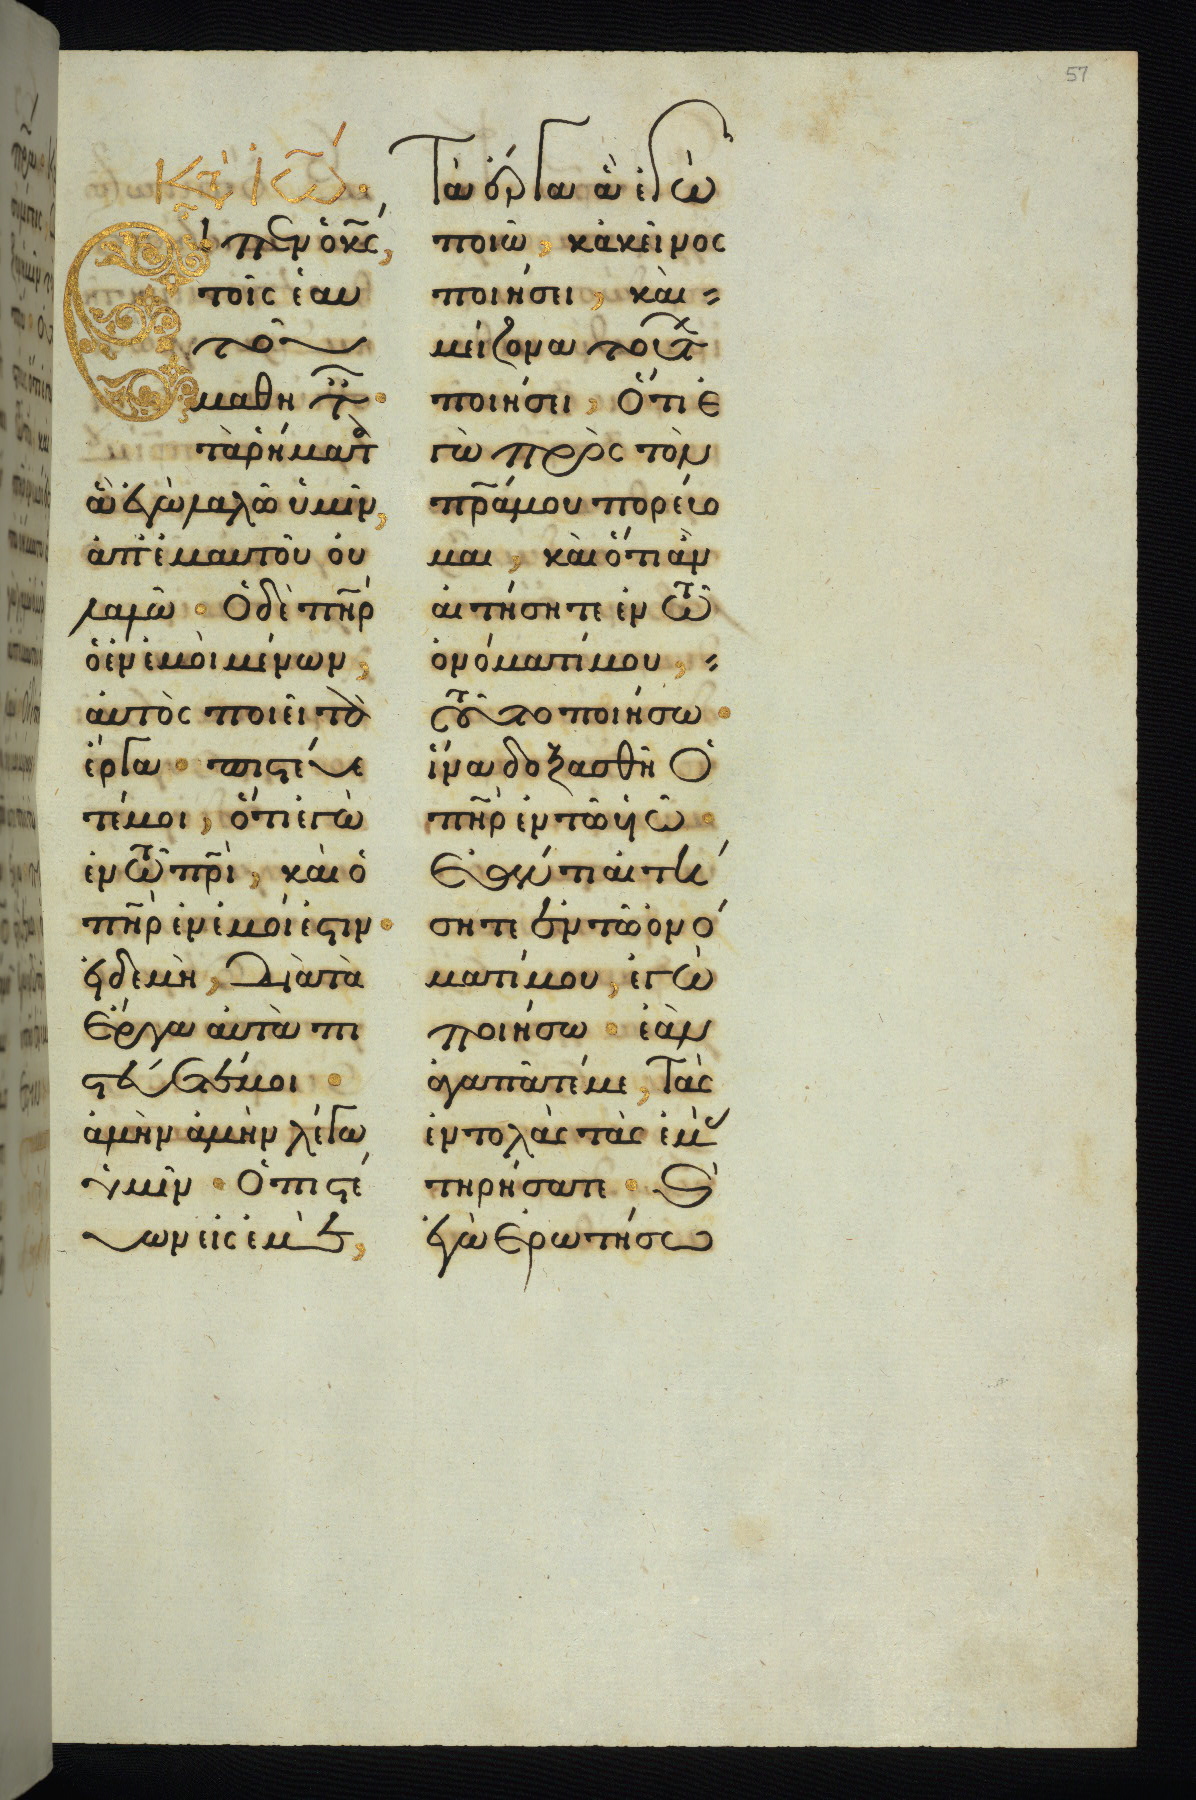 57
Κτ Ἰω.
Εἶπεν ὁ κς,
τοῖς ἑαυ
τοῦ
μαθητ.
τὰ ῥήματ
ἃ ἐγὼ λαλῶ ὑμῖν,
ἀπ' ἐμαυτοῦ ου
λαλῶ. Ὁ δὲ πηρ
ὁ ἐν ἐμοὶ μένων,
ἀυτὸς ποιεῖ τὰ
ἔργα. πιστέυε
τέ μοι, ὅτι ἐγὼ
ἐν τῶ πρὶ, καὶ ὁ
πηρ ἐν ἐμοί ἐστιν.
ἐι δὲ μὴ, διὰ τὰ
ἔργα ἀυτὰ πι
στέυετέ μοι.
ἀμὴν ἀμὴν λέγω
ὑμῖν. Ὁ πιστέ
υων εἰς ἐμὲ,
Τὰ ἔργα ἃ ἐγὼ
ποιῶ, κἀκεῖνος
ποιήσει, καὶ
μείζονα τούτ
ποιήσει, Ὅτι ἐ
γὼ πρὸς τὸν
πρα μου πορέυο
μαι, καὶ ὅτι ἂν
αἰτήσητε ἐν τῶ
ὀνόματί μου,
τοῦτο ποιήσω.
ἵνα δοξασθῆ Ὁ
πηρ ἐν τῶ υἱῶ.
Ἐάν τι αἰτή
σητε ἐν τῶ ὀνό
ματί μου, ἐγὼ
ποιήσω. ἐὰν
ἀγαπᾶτέ με, Τὰς
ἐντολὰς τὰς ἐμὰς
τηρήσατε. Καὶ
ἐγὼ ἐρωτήσω